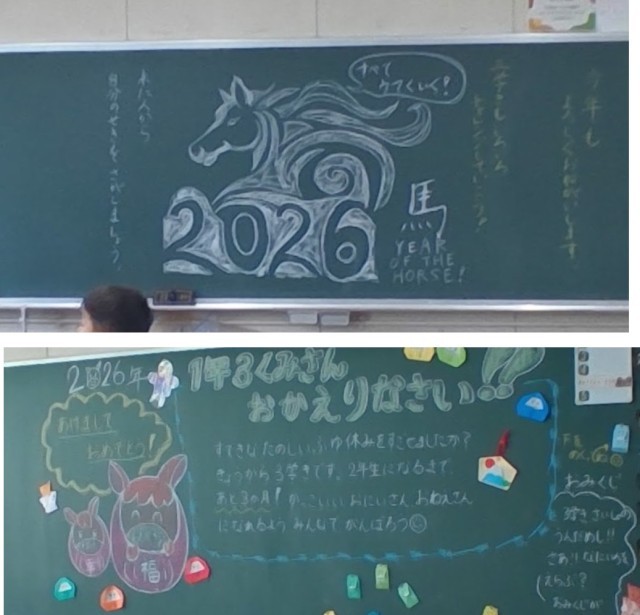 今年も
よろしくお願いします。
すべて
ウマくいく!
2026
馬
YEAR
OF THE
HORSE!
来た人から
自分のせきをさがしましょう。
2026年
1年3くみさん
おかえりなさい
あけまして
おめでとう!
すてきな たのしい ふゆ休みをすごせましたか?
きょうから 3学きです。2年生になるまで、
あと3か月! かっこいい おにいさん、おねえさん
になれるよう みんなで がんばろう
福
おみくじ
3学きさいしょの
うんだめし!!
さあ!! なにいろを
えらぶ?
おみくじが